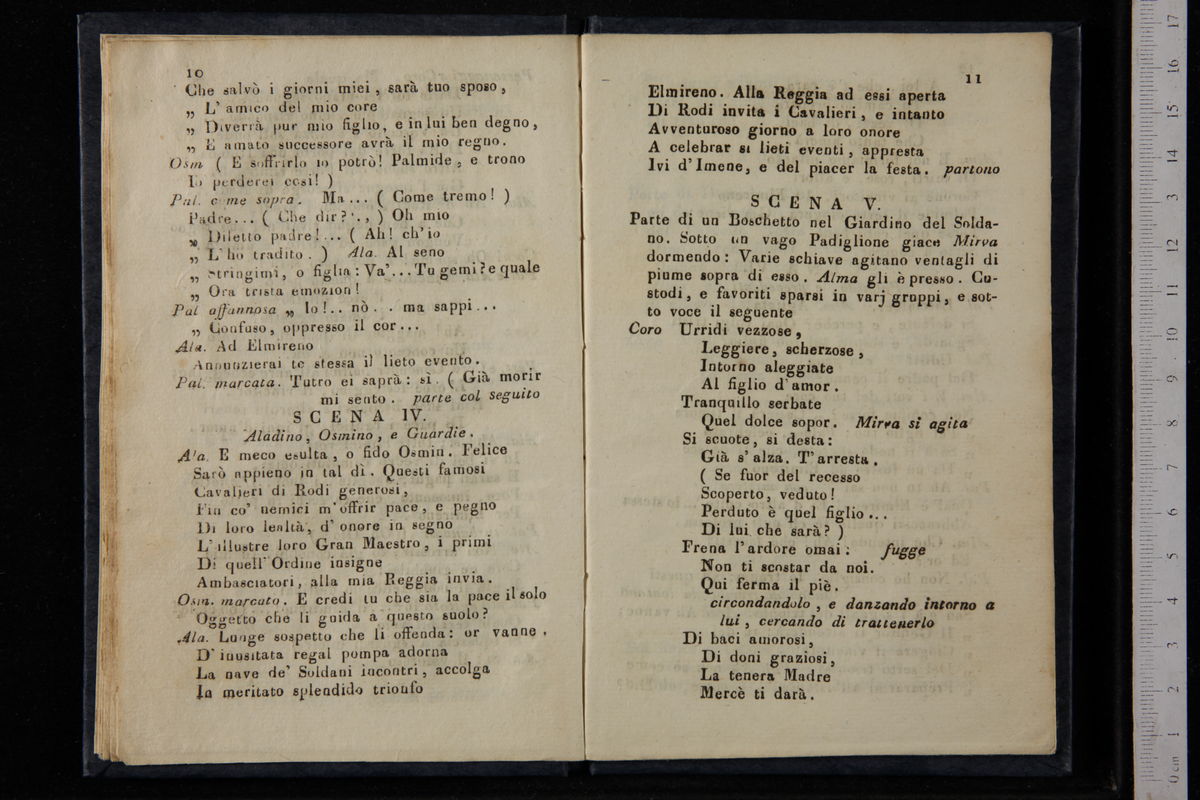 10
Che salvò i giorni miei, sarà tuo sposo,
„ L' amico del mio core
„ Diverrà pur mio figlio, e in lui ben degno,
„ E amato successore avrà il mio regno.
Osm. ( E soffrirlo io potrò! Palmide, e trono
Io perderei così! )
Pal. come sopra. Ma... ( Come tremo! )
Padre... ( Che dir?'., ) Oh mio
„ Diletto padre!... ( Ah! ch'io
„ L'ho tradito. ) Ala. Al seno
„ Stringimi, o figlia: Va'... Tu gemi? e quale
„ Ora trista emozion!
Pal affannosa „ Io!.. nò. . ma sappi...
„ Confuso, oppresso il cor...
Ala. Ad Elmireno
Annunzierai te stessa il lieto evento.
Pal. marcata. Tutro ei saprà: sì. ( Già morir
mi sento. parte col seguito
SCENA IV.
Aladino, Osmino, e Guardie.
Ala. E meco esulta, o fido Osmin. Felice
Sarò appieno in tal dì. Questi famosi
Cavalieri di Rodi generosi,
Fin co' nemici m'offrir pace, e pegno
Di loro lealtà, d' onore in segno
L' illustre loro Gran Maestro, i primi
Di quell' Ordine insigne
Ambasciatori, alla mia Reggia invia.
Osm. marcato. E credi tu che sia la pace il solo
Oggetto che li guida a questo suolo?
Ala. Lunge sospetto che li offenda: or vanne,
D' inusitata regal pompa adorna
La nave de' Soldani incontri, accolga
In meritato splendido trionfo
11
Elmireno. Alla Reggia ad essi aperta
Di Rodi invita i Cavalieri, e intanto
Avventuroso giorno a loro onore
A celebrar si lieti eventi, appresta
Ivi d'Imene, e del piacer la festa. partono
SCENA V.
Parte di un Boschetto nel Giardino del Solda-
no. Sotto un vago Padiglione giace Mirva
dormendo: Varie schiave agitano ventagli di
piume sopra di esso. Alma gli è presso. Cu-
stodi, e favoriti sparsi in varj gruppi, e sot-
to voce il seguente
Coro Urridi vezzose,
Leggiere, scherzose,
Intorno aleggiate
Al figlio d'amor.
Tranquillo serbate
Quel dolce sopor. Mirva si agita
Si scuote, si desta:
Già s'alza. T'arresta.
( Se fuor del recesso
Scoperto, veduto!
Perduto è quel figlio...
Di lui che sarà? )
Frena l'ardore omai: fugge
Non ti scostar da noi.
Qui ferma il piè.
circondandolo, e danzando intorno a
lui, cercando di trattenerlo
Di baci amorosi,
Di doni graziosi,
La tenera Madre
Mercè ti darà.
0 cm 1 2 3 4 5 6 7 8 9 10 11 12 13 14 15 16 17